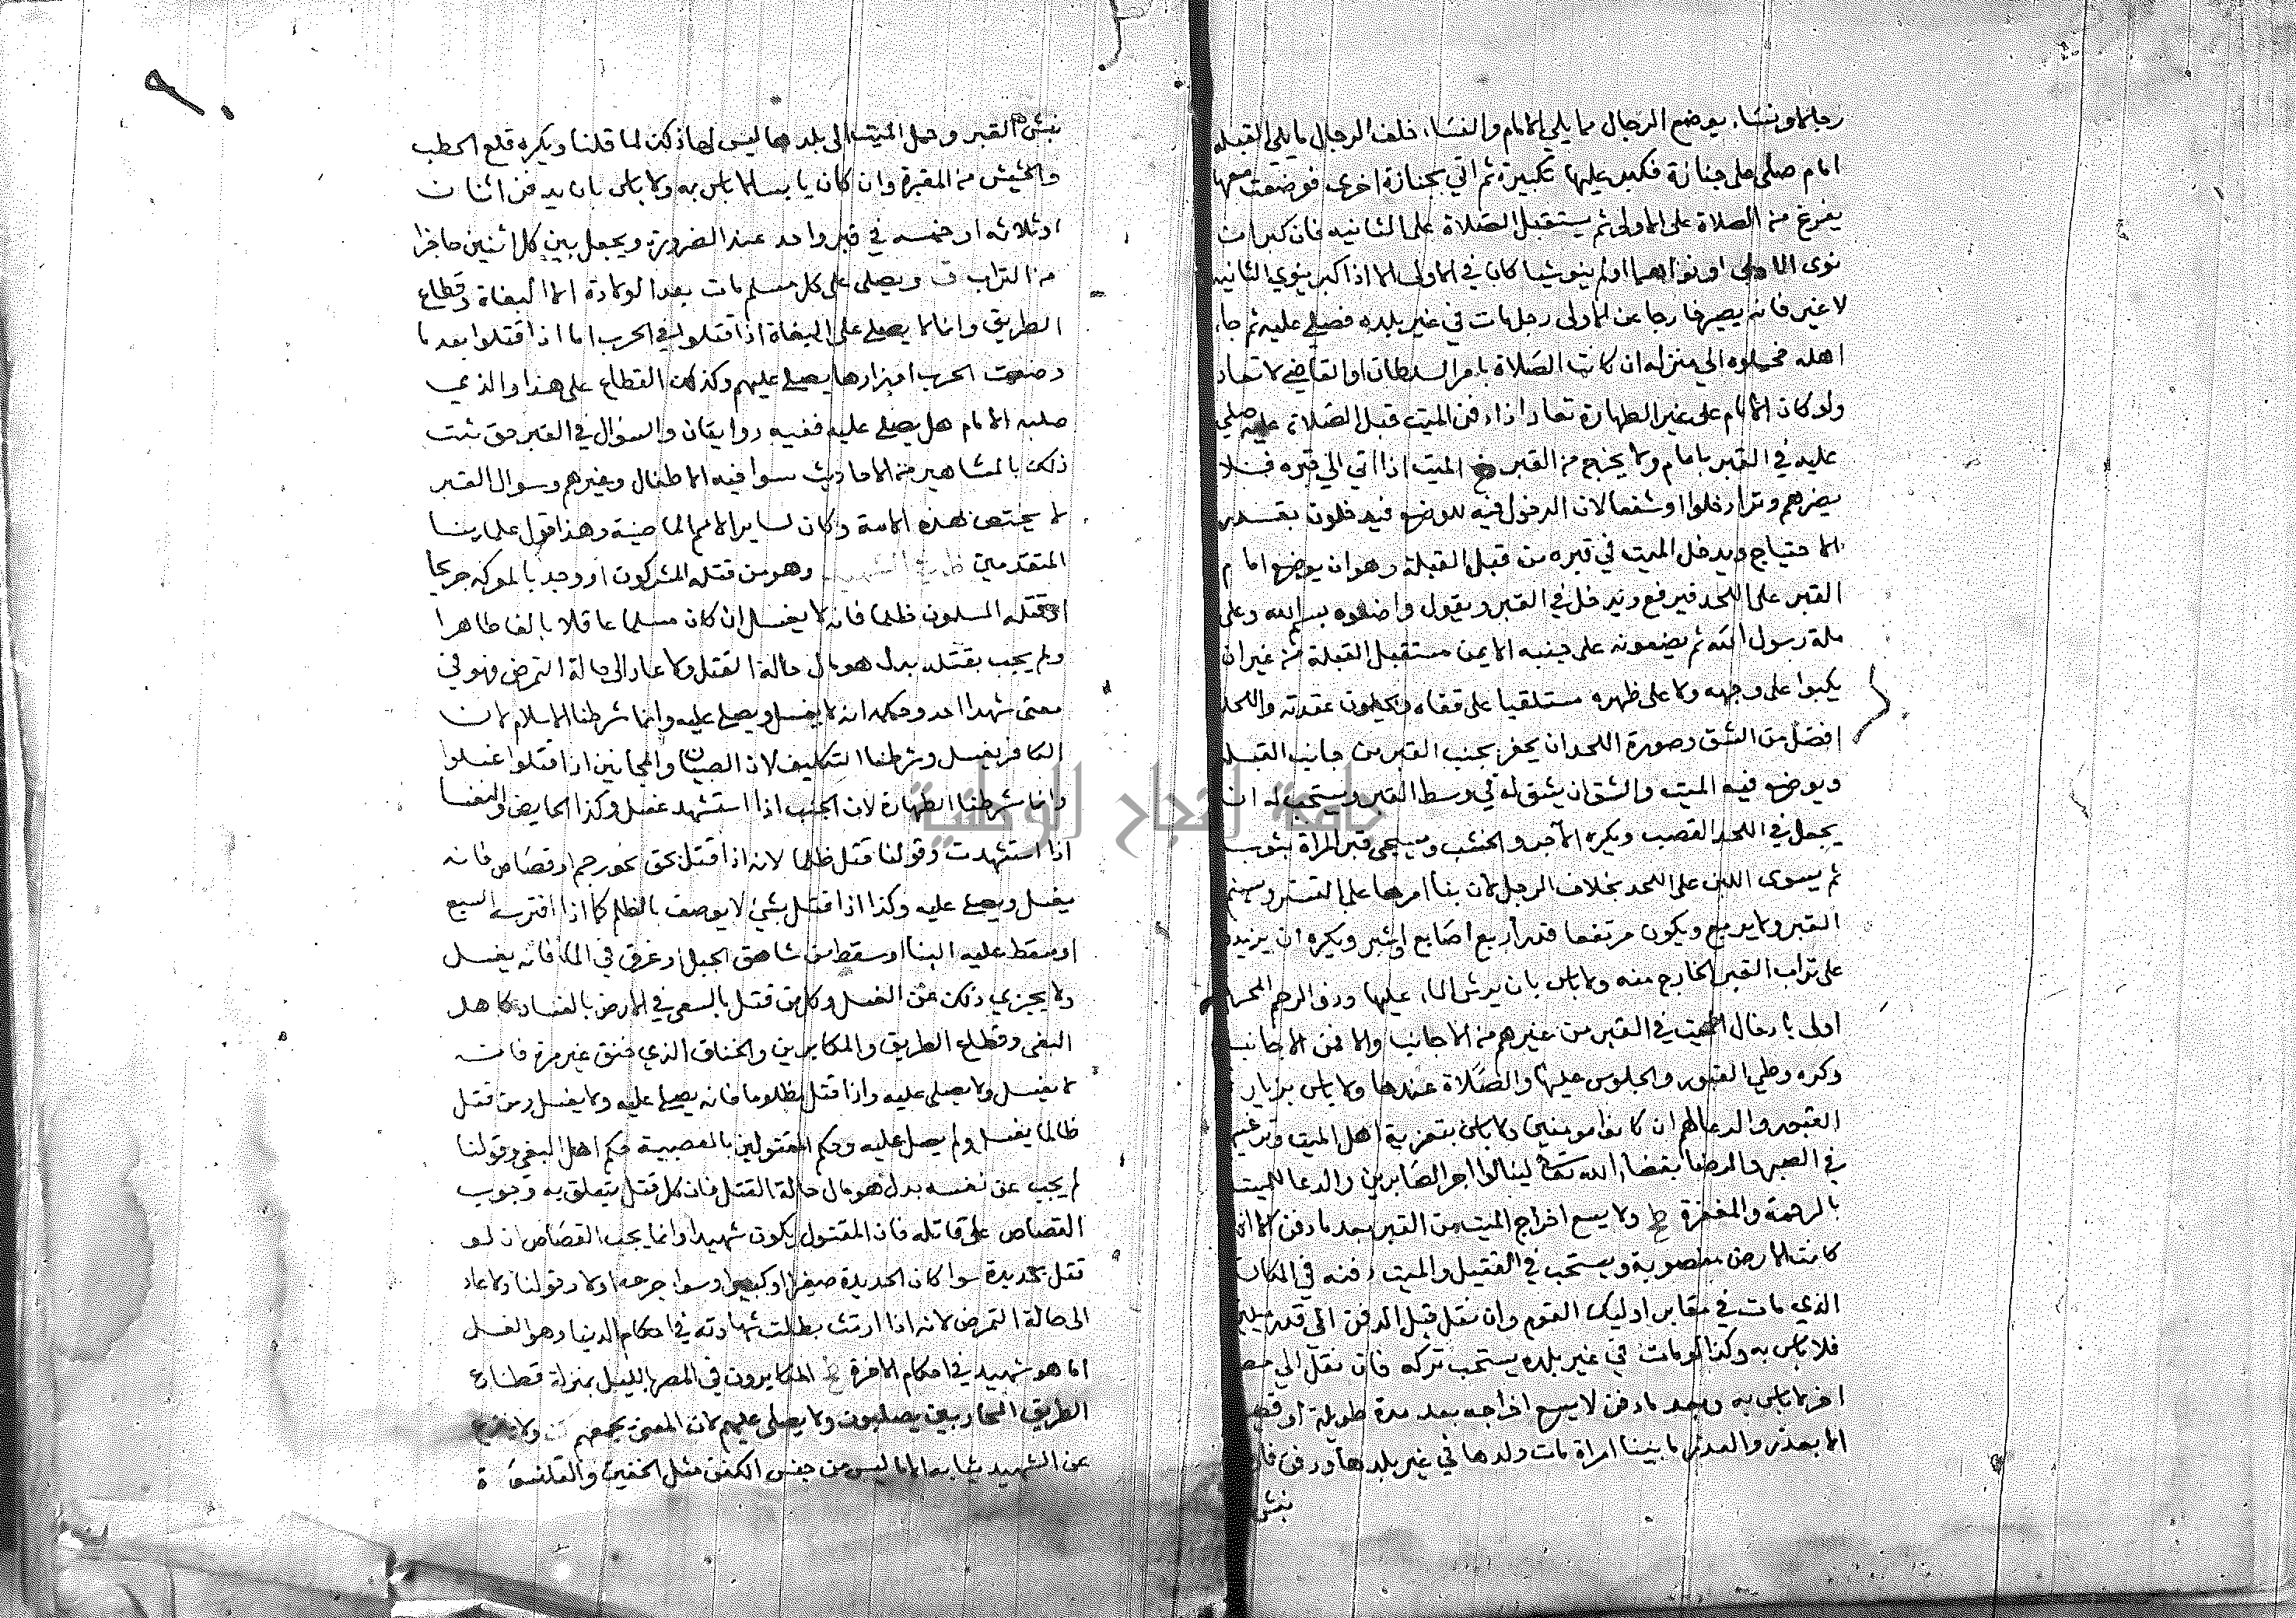 رجالا ونساء يوضع الرجال مما يلي الامام والنساء خلف الرجال مما يلي القبلة
امام صلى على جنازة فكبر عليها تكبيرة ثم اتي بجنازة اخرى فوضعت معها
يفرغ من الصلاة على الاولى ثم يستقبل الصلاة على الثانيه فان كبر
نوى الاولى او نواهما او لم ينو شيا كان في الاولى الا اذا كبر ينوي الثانيه
لا غير فانه يصير خارجا عن الاولى رجل مات في غير بلده فصلي عليه ثم جاء
اهله فحملوه الى منزله ان كانت الصلاة بامر السلطان او القاضي لا تعاد
ولو كان الامام على غير الطهارة تعاد اذا دفن الميت قبل الصلاة عليه صلي
عليه في القبر ما دام ولا يخرج من القبر الميت اذا اتي الى قبره فلا
يضرهم وترا دخلوا او شفعا لان الدخول فيه للوضع فيدخلون بقدر
الاحتياج ويدخل الميت في قبره من قبل القبلة وهو ان يوضع امام
القبر على اللحد فيرفع ويدخل في القبر ويقول واضعوه بسم الله وعلى
ملة رسول الله ثم يضعونه على جنبه الايمن مستقبل القبلة من غير ان
يكبوا على وجهه ولا على ظهره مستلقيا على قفاه ويحلون عقدته واللحد
افضل من الشق وصورة اللحد ان يحفر بجنب القبر من جانب القبلة
ويوضع فيه الميت والشق ان يشق له في وسط القبر ويستحب له ان
يجعل في اللحد القصب ويكره الآجر والخشب ويسجى قبر المراة بثوب
ثم يسوى اللبن على اللحد بخلاف الرجل لان بنا امرها على التستر ويسنم
القبر ولا يربع ويكون مرتفعا قدر اربع اصابع او شبر ويكره ان يزيد
على تراب القبر الخارج منه ولا باس بان يرش الماء عليها وذو الرحم المحرم
اولى بادخال الميت في القبر من غيرهم من الاجانب والا فمن الاجانب
وكره وطي القبور والجلوس عليها والصلاة عندها ولا باس بزيارة
القبور والدعا لهم ان كانوا مومنين ولا باس بتعزية اهل الميت وترغيبهم
في الصبر والرضا بقضاء الله تعالى لينالوا اجر الصابرين والدعا للميت
بالرحمة والمغفرة ولا يسع اخراج الميت من القبر بعد ما دفن الا ان
كانت الارض مغصوبة ويستحب في القتيل والميت دفنه في المكان
الذي مات في مقابر اوليك القوم وان نقل قبل الدفن الى قدر ميلين
فلا باس به وكذا لو مات في غير بلده يستحب تركه فان نقل الى مصر
اخر لا باس به وبعد ما دفن لا يسع اخراجه بعد مدة طويلة او قصيرة
الا بعذر والعذر ما بينا امراة مات ولدها في غير بلدها ودفن فارادت
نبش
نبش القبر وحمل الميت الى بلدها ليس لها ذلك لما قلنا ويكره قلع الحطب
والحشيش من المقبرة وان كان يابسا لا باس به ولا باس بان يدفن اثنان
او ثلاثه او خمسه في قبر واحد عند الضرورة ويجعل بين كل اثنين حاجزا
من التراب ويصلى على كل مسلم مات بعد الولادة الا البغاة وقطاع
الطريق وانما لا يصلي على البغاة اذا قتلوا في الحرب اما اذا قتلوا بعد ما
وضعت الحرب اوزارها يصلي عليهم وكذلك القطاع على هذا والذي
صلبه الامام هل يصلي عليه ففيه روايتان والسوال في القبر حق ثبت
ذلك بالمشاهير من الاحاديث سوا فيه الاطفال وغيرهم وسوال القبر
لا يختص بهذه الامة وكان لساير الامم الماضية وهذا قول علماينا
المتقدمين وهو من قتله المشركون او وجد بالمعركة جريحا
او قتله المسلمون ظلما فانه لا يغسل ان كان مسلما عاقلا بالغا طاهرا
ولم يجب بقتله بدل هو مال حالة القتل ولا عاد الى حالة التمرض فهو في
معنى شهدا احد وحكمه انه لا يغسل ويصلي عليه وانما شرطنا الاسلام لان
الكافر يغسل وشرطنا التكليف لان الصبيان والمجانين اذا قتلوا غسلوا
وانما شرطنا الطهارة لان الجنب اذا استشهد غسل وكذا الحايض والنفسا
اذا استشهدت وقولنا قتل ظلما لانه اذا قتل بحق نحو رجم او قصاص فانه
يغسل ويصلي عليه وكذا اذا قتل بشي لا يوصف بالظلم كما اذا افترسه السبع
او سقط عليه البنا او سقط من شاهق الجبل او غرق في الماء فانه يغسل
ولا يجزي ذلك عن الغسل وكل من قتل بالسعي في الارض بالفساد كاهل
البغي وقطاع الطريق والمكابرين والخناق الذي خنق غير مرة فانه
لا يغسل ولا يصلى عليه واذا قتل مظلوما فانه يصلي عليه ولا يغسل ومن قتل
ظالما يغسل ولم يصل عليه وحكم المقتولين بالعصبية حكم اهل البغي وقولنا
لم يجب عن نفسه بدل هو مال حالة القتل فان كل قتل يتعلق به وجوب
القصاص على قاتله فان المقتول يكون شهيدا وانما يجب القصاص ان لو
قتل بحديدة سوا كان الحديدة صغيرا او كبيرا وسوا جرحه اولا وقولنا ولا عاد
الى حالة التمرض لانه اذا ارتث بطلت شهادته في احكام الدنيا وهو الغسل
اما هو شهيد في احكام الاخرة المكابرون في المصر بالليل بمنزلة قطاع
الطريق المحاربين يصلبون ولا يصلى عليهم لان المعنى يجمعهم ولا ينزع
عن الشهيد ثيابه الا ما ليس من جنس الكفن مثل الخفين والقلنسوة
٩٠
جامعة النجاح الوطنية